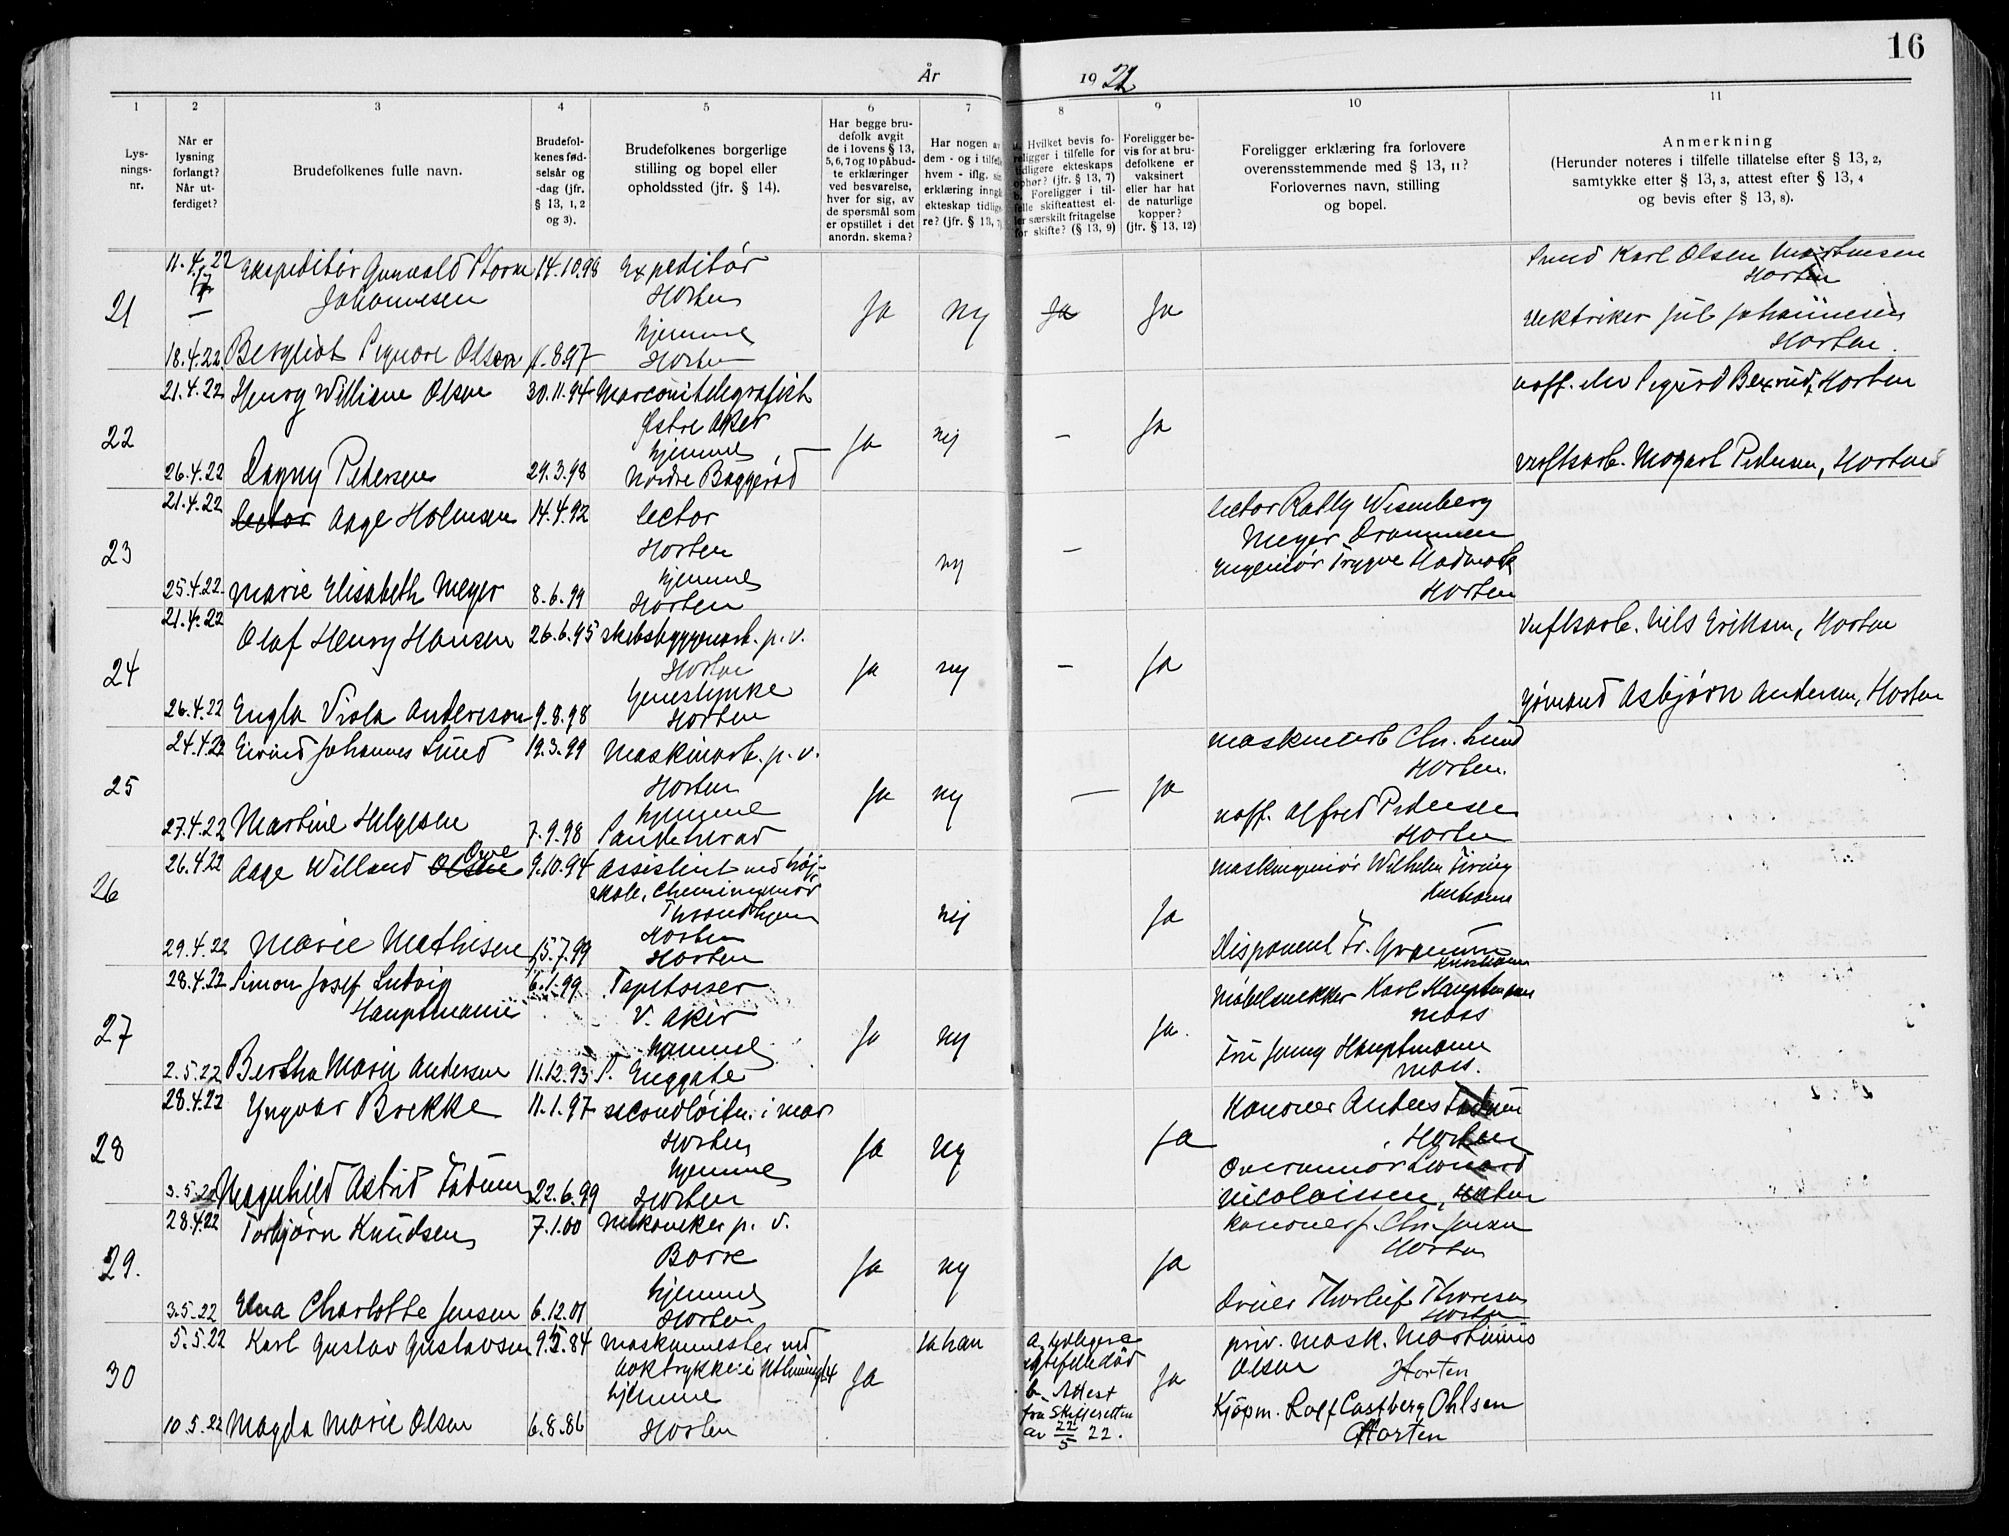 16
År 1922
1
2
3
4
5
6
7
8
9
10
11
Lys-
nings-
nr.
Når er
lysning
forlangt?
Når ut-
ferdiget?
Brudefolkenes fulle navn.
Brudefol-
kenes fød-
selsår og
-dag (jfr.
§ 13, 1, 2
og 3).
Brudefolkenes borgerlige
stilling og bopel eller
opholdssted (jfr. § 14).
Har begge bru-
defolk avgit
de i lovens § 13,
5, 6, 7 og 10 påbud-
te erklæringer
ved besvarelse,
hver for sig, av
de spørsmål som
er opstillet i det
anordn. skema?
Har nogen av
dem - og i tilfelle
hvem - iflg. sin
erklæring inngått
ekteskap tidlige-
re? (jfr. § 13, 7)
a. Hvilket bevis fo-
religger i tilfelle for
tidligere ekteskaps
ophør? (jfr. § 13, 7)
b. Foreligger i til-
felle skifteattest el-
ler særskilt fritagelse
for skifte? (§ 13, 9)
Foreligger be-
vis for at bru-
defolkene er
vaksinert
eller har hat
de naturlige
kopper?
(jfr. § 13, 12)
Foreligger erklæring fra forlovere
overensstemmende med § 13, 11?
Forlovernes navn, stilling
og bopel.
Anmerkning
(Herunder noteres i tilfelle tillatelse efter § 13, 2,
samtykke efter § 13, 3, attest efter § 13, 4
og bevis efter § 13, 8).
21
11.4.22 Ekspeditør Gunvald Storm 14.10.98 Expeditør
Johannesen Horten
Ja nej Ja Ja
hjemme
18.4.22 Bergliot Signore Olsen 11.8.97 Horten
Karl Olsen
Horten
elektriker Jul Johannesen
Horten.
22
21.4.22 Henry William Olsen 30.11.94 Marconitelegrafist
Østre Aker
Ja nej – Ja
hjemme
26.4.22 Dagny Pedersen 29.3.98 Nordre Baggerød
uoff. elev Sigurd Bexrud, Horten
verftsarb. Mozart Pedersen, Horten
23
21.4.22 lector Aage Holmsen 14.4.92 lector
Horten
nej –
hjemme
25.4.22 Marie Elisabeth Meyer 8.6.99 Horten
lector Rolly Wesenberg
Meyer Drammen
Ingeniør Trygve Hadmark
Horten
24
21.4.22
Olaf Henry Hansen 26.6.95 skibsbyggerarb. p. v.
Horten
Ja nej – Ja
26.4.22 Engla Viola Andersson 9.8.98 Horten
verftsarb. Nils Eriksen, Horten
Asbjørn Andersen, Horten
25
24.4.22 Eivind Johannes Lund 19.3.99 Maskinarb. p. v.
Horten
Ja nej – Ja
hjemme
27.4.22 Martine Helgesen 7.9.98 Sandeherad
maskinarb Chr. Lund
Horten.
uoff. Alfred Pedersen
Horten
26
26.4.22 Aage Willand Olsen Owe 9.10.94 Assistent ved høi-
skole, Chemiingeniør
Throndhjem
nej Ja
Horten
29.4.22 Marie Mathisen 15.7.99 Horten
maskiningeniør Wilhelm
Disponent Fr.
27
28.4.22 Simon Josef Ludvig 6.1.99 Tapetserer
Hauptmann V. Aker
Ja nej Ja.
hjemme
2.5.22 Bertha Marie Andersen 11.12.93 S. Enggate
Møbelsnekker Karl Hauptmann
Moss
Fru Jenny Hauptmann
Moss.
28
28.4.22 Yngvar Brekke 11.1.97 secondløitn. i mar
Horten
Ja nej Ja
hjemme
3.5.22 Magnhild Astrid Fadum 22.6.99 Horten
Kanoner Anders Fadum
Horten
Leonard
Nicolaissen, Horten
29.
28.4.22 Torbjørn Knudsen 7.1.00 Mekaniker p. v.
Borre
Ja nej Ja
hjemme
3.5.22 Elna Charlotte Jensen 6.12.01 Horten
kanoner J. Chr. Jensen
Horten
Thorleif Thoresen
Horten
30
5.5.22 Karl Gustav Gustavsen 9.5.84 maskinmester ved
boktrykkeri
Ja Ja han Ja
hjemme
10.5.22 Magda Marie Olsen 6.8.86 Horten
a. tidligere
ektefelle død
b. Attest
fra Skifteretten
av 22/5 22.
priv. mask. Martinius
Olsen Horten
Kjøpm. Rolf Castberg Ohlsen
Horten